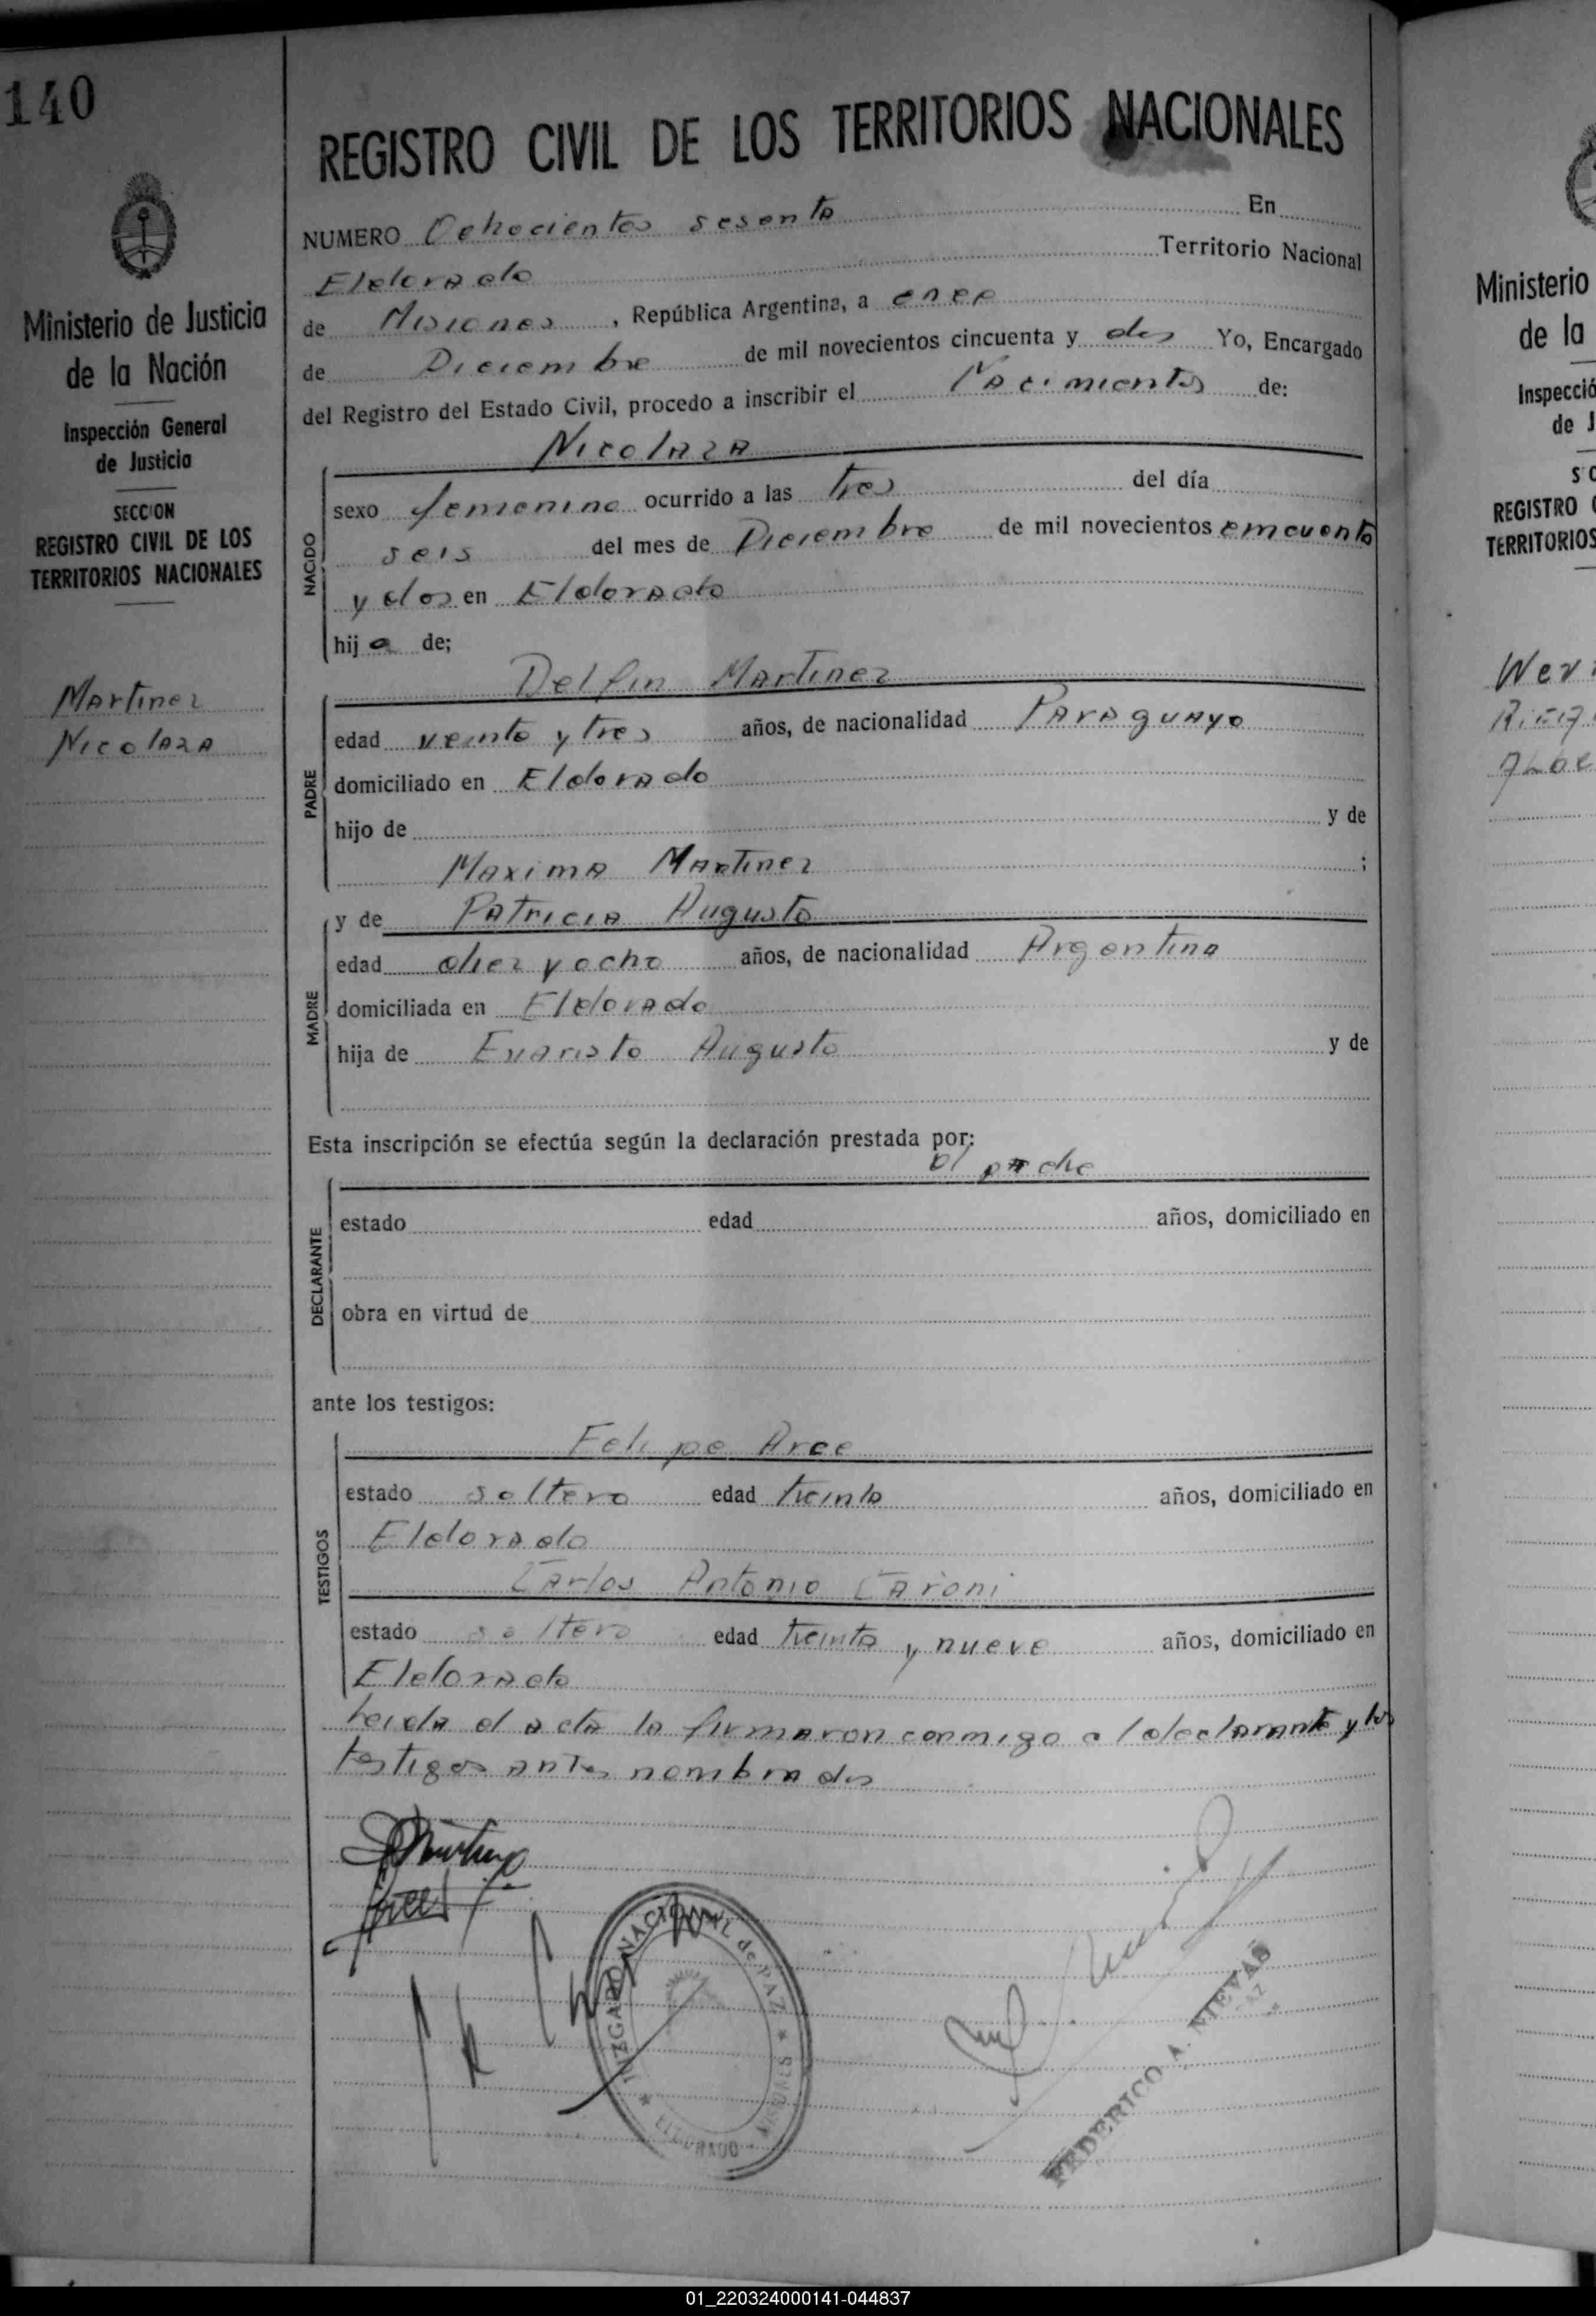 140
Ministerio de Justicia
de la Nación
Inspección General
de Justicia
SECCION
REGISTRO CIVIL DE LOS
TERRITORIOS NACIONALES
Martinez
Nicolaza
REGISTRO CIVIL DE LOS TERRITORIOS NACIONALES
NUMERO Ochocientos sesenta En
Eldorado Territorio Nacional
de Misiones, República Argentina, a once
de Diciembre de mil novecientos cincuenta y dos Yo, Encargado
del Registro del Estado Civil, procedo a inscribir el Nacimiento de:
Nicolaza
NACIDO
sexo femenino ocurrido a las tres del día
seis del mes de Diciembre de mil novecientos cincuenta
y dos en Eldorado
hija de;
Delfin Martinez
PADRE
edad veinte y tres años, de nacionalidad Paraguayo
domiciliado en Eldorado
hijo de y de
Maxima Martinez ;
y de Patricia Augusto
MADRE
edad diez y ocho años, de nacionalidad Argentina
domiciliada en Eldorado
hija de Evaristo Augusto y de
Esta inscripción se efectúa según la declaración prestada por:
el padre
DECLARANTE
estado edad años, domiciliado en
obra en virtud de
ante los testigos:
Felipe Arce
TESTIGOS
estado soltero edad treinta años, domiciliado en
Eldorado
Carlos Antonio Caroni
estado soltero edad treinta y nueve años, domiciliado en
Eldorado
Leida el acta la firmaron conmigo el declarante y los
testigos antes nombrados
JUZGADO NACIONAL de PAZ
ELDORADO MISIONES
FEDERICO A. NIEVAS
PAZ
Ministerio
de la
Inspecció
de J
REGISTRO
TERRITORIOS
01_220324000141-044837